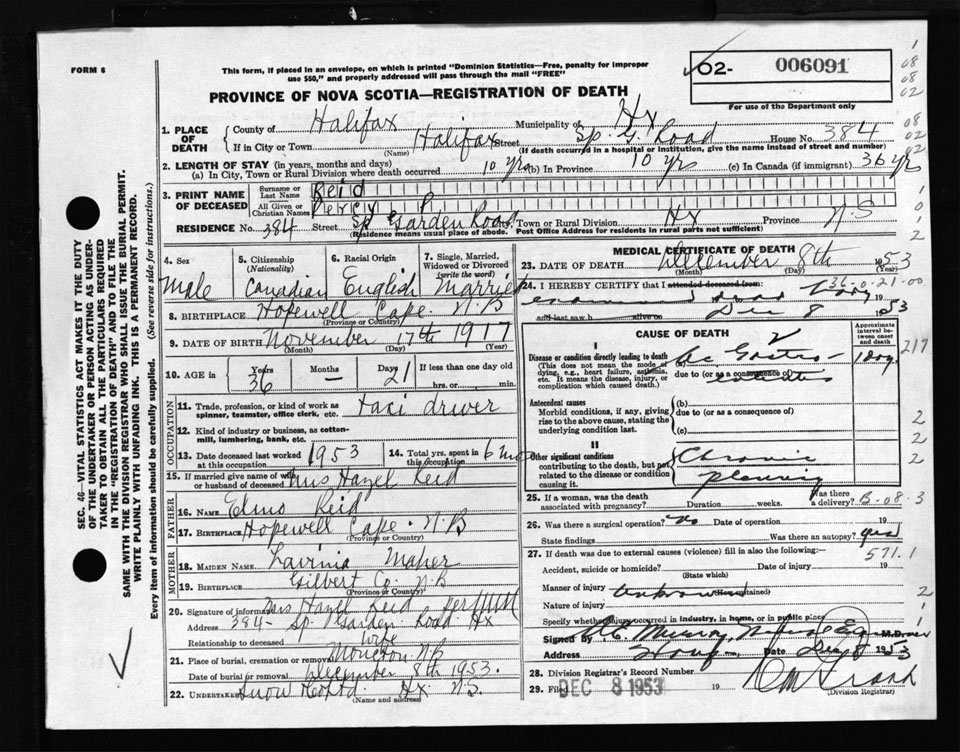 FORM 6
This form, if placed in an envelope, on which is printed "Dominion Statistics—Free, penalty for improper use $50," and properly addressed will pass through the mail "FREE"
O2- 006091
For use of the Department only
PROVINCE OF NOVA SCOTIA—REGISTRATION OF DEATH
1. PLACE OF DEATH County of Halifax Municipality of Hx
If in City or Town Halifax Street Sp. G. Road House No. 384
(Name) (If death occurred in a hospital or institution, give the name instead of street and number)
2. LENGTH OF STAY (in years, months and days)
(a) In City, Town or Rural Division where death occurred 10 yrs (b) In Province 10 yrs (c) In Canada (if immigrant) 36 yr
3. PRINT NAME OF DECEASED Surname or Last Name Reid
All Given or Christian Names Percy P
RESIDENCE No. 384 Street Sp Garden Road City, Town or Rural Division Hx Province N.S
(Residence means usual place of abode. Post Office Address for residents in rural parts not sufficient)
4. Sex Male
5. Citizenship (Nationality) Canadian
6. Racial Origin English
7. Single, Married, Widowed or Divorced (write the word) Married
8. BIRTHPLACE Hopewell Cape. N.B
(Province or Country)
9. DATE OF BIRTH November 17th 1917
(Month) (Day) (Year)
10. AGE in Years 36 Months — Days 21 If less than one day old hrs. or min.
OCCUPATION
11. Trade, profession, or kind of work as spinner, teamster, office clerk, etc. taxi driver
12. Kind of industry or business, as cotton-mill, lumbering, bank, etc.
13. Date deceased last worked at this occupation 1953
14. Total yrs. spent in this occupation 6 mos
15. If married give name of husband or wife of deceased Mrs Hazel Reid
FATHER
16. Name Reid
17. Birthplace Hopewell Cape. N.B
(Province or Country)
MOTHER
18. MAIDEN NAME Lavinia Maher
19. BIRTHPLACE Co. N.B
(Province or Country)
20. Signature of informant Mrs Hazel Reid per
Address 384- Sp. Garden Road. Hx
Relationship to deceased wife
21. Place of burial, cremation or removal Moncton NB
Date of burial or removal December 8th 1953.
22. UNDERTAKER Snow Hx N.S.
(Name and address)
MEDICAL CERTIFICATE OF DEATH
23. DATE OF DEATH December 8th 1953
(Month) (Day) (Year)
24. I HEREBY CERTIFY that I attended deceased from: 36-0-21-00
examined dead body 19
and last saw h alive on Dec 8 1953
CAUSE OF DEATH
Approximate interval between onset and death
I
Disease or condition directly leading to death (This does not mean the mode of dying, e.g., heart failure, asthenia, etc. It means the disease, injury, or complication which caused death.)
(a) Ac Gastro 1 day
due to (or as a consequence of)
217
Antecedent causes
Morbid conditions, if any, giving rise to the above cause, stating the underlying condition last.
(b)
due to (or as a consequence of)
(c)
2
2
II
Other significant conditions contributing to the death, but not related to the disease or condition causing it.
Chronic pleurisy
2
25. If a woman, was the death associated with pregnancy? Duration weeks. Was there a delivery? B-08-3
26. Was there a surgical operation? No Date of operation 19
State findings Was there an autopsy? yes
27. If death was due to external causes (violence) fill in also the following:— 571.1
Accident, suicide or homicide? Date of injury 19
(State which)
Manner of injury unknown
Nature of injury
Specify whether injury occurred in industry, in home, or in public place
Signed by M.D.
Address Date Dec 8 1953
28. Division Registrar's Record Number
29. Filed DEC 8 1953 19
(Division Registrar)
SEC. 46—VITAL STATISTICS ACT MAKES IT THE DUTY OF THE UNDERTAKER OR PERSON ACTING AS UNDERTAKER TO OBTAIN ALL THE PARTICULARS REQUIRED IN THE "REGISTRATION OF DEATH" AND TO FILE THE SAME WITH THE DIVISION REGISTRAR WHO SHALL ISSUE THE BURIAL PERMIT. WRITE PLAINLY WITH UNFADING INK. THIS IS A PERMANENT RECORD.
Every item of information should be carefully supplied. (See reverse side for instructions.)